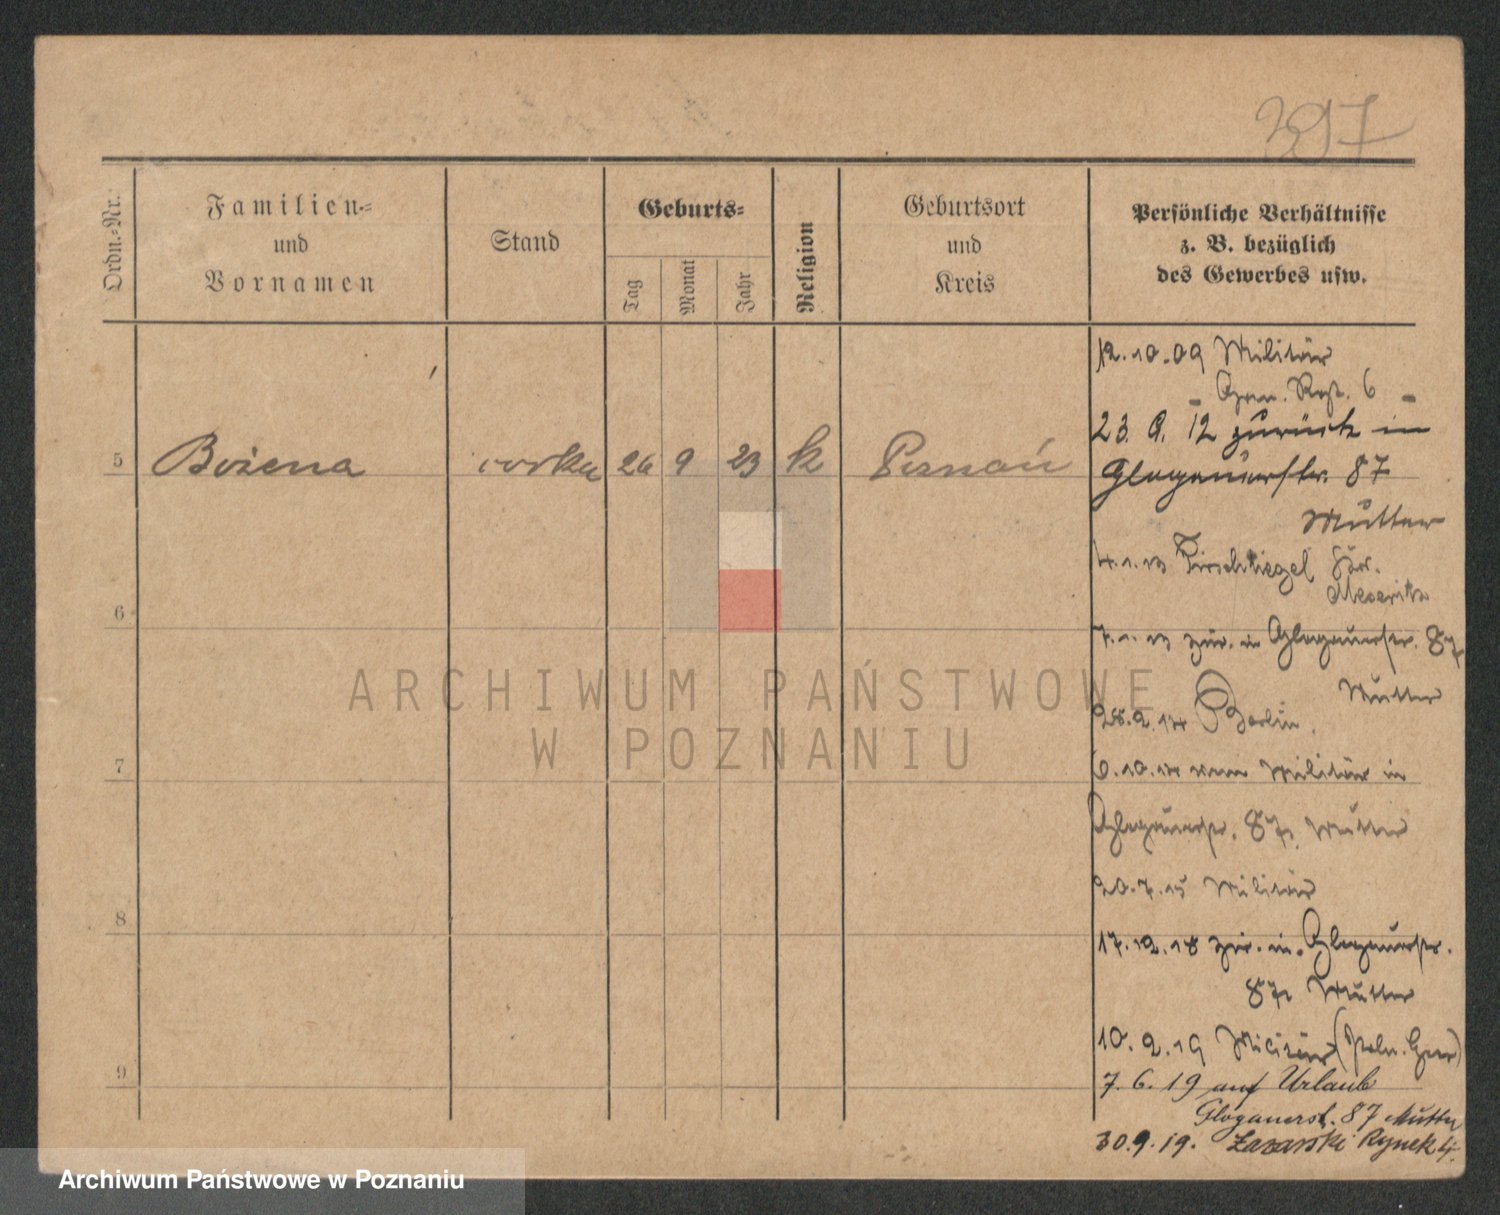 397
Ordn.-Nr.
Familien-
und
Vornamen
Stand
Geburts-
Tag
Monat
Jahr
Religion
Geburtsort
und
Kreis
Persönliche Verhältnisse
z. B. bezüglich
des Gewerbes usw.
5 Bożena córka 26 9 23 k Poznań
6
7
8
9
12.10.09 Militär
Gren. Regt. 6
23. 9. 12 zurück in
Glogauerstr. 87
Mutter
4.1.13 Tirschtiegel
Meseritz
7.1.13 zür. in Glogauerstr. 87
Mutter
28.2.14 Berlin.
6.10.14 vom Militär in
Glogauerstr. 87, Mutter
20.7.15 Militär
17.12.18 zür. in Glogauerstr.
87, Mutter
10.2.19 Militär (Poln. Heer)
7.6.19 auf Urlaub
Glogauerst. 87 Mutter
30.9.19. Łazarski Rynek 4.
ARCHIWUM PAŃSTWOWE
W POZNANIU
Archiwum Państwowe w Poznaniu